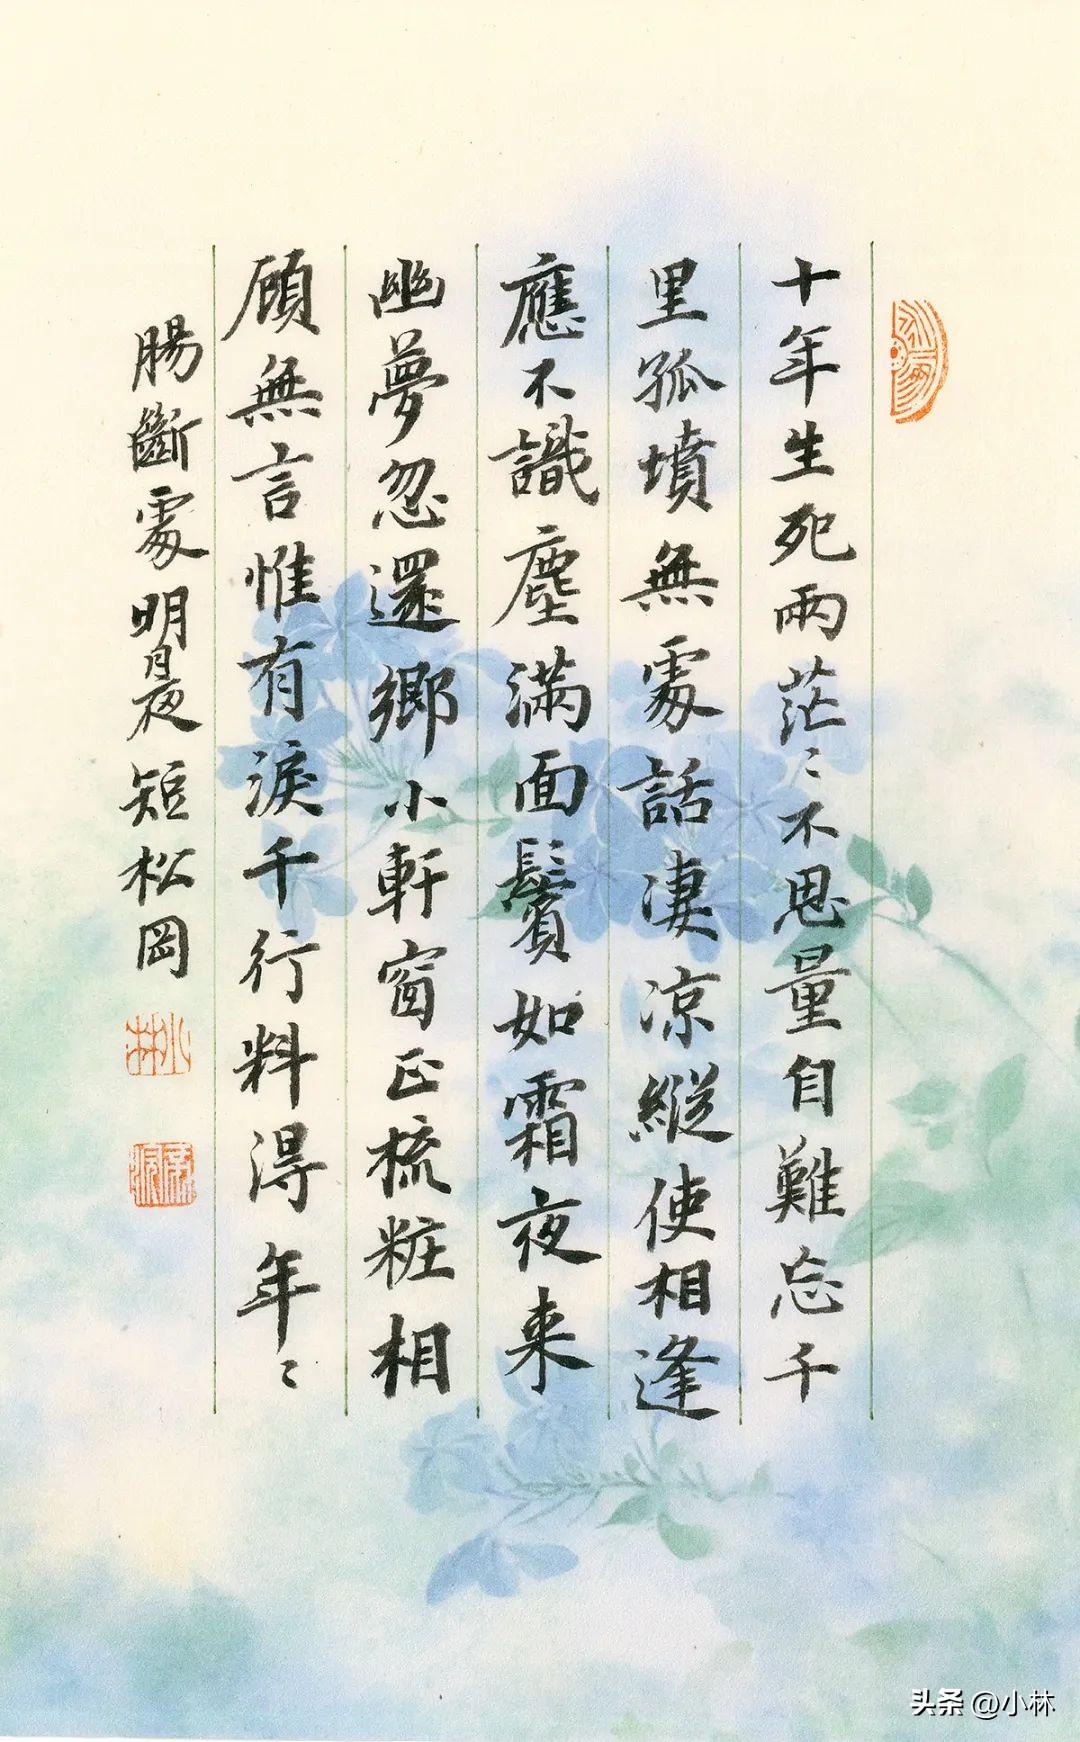 十年生死兩茫〻不思量自難忘千
里孤墳無處話淒涼縱使相逢
應不識塵滿面鬢如霜夜来
幽夢忽還鄉小軒窗正梳粧相
顧無言惟有淚千行料得年〻
腸斷處明月夜短松岡
小林
头条 @小林